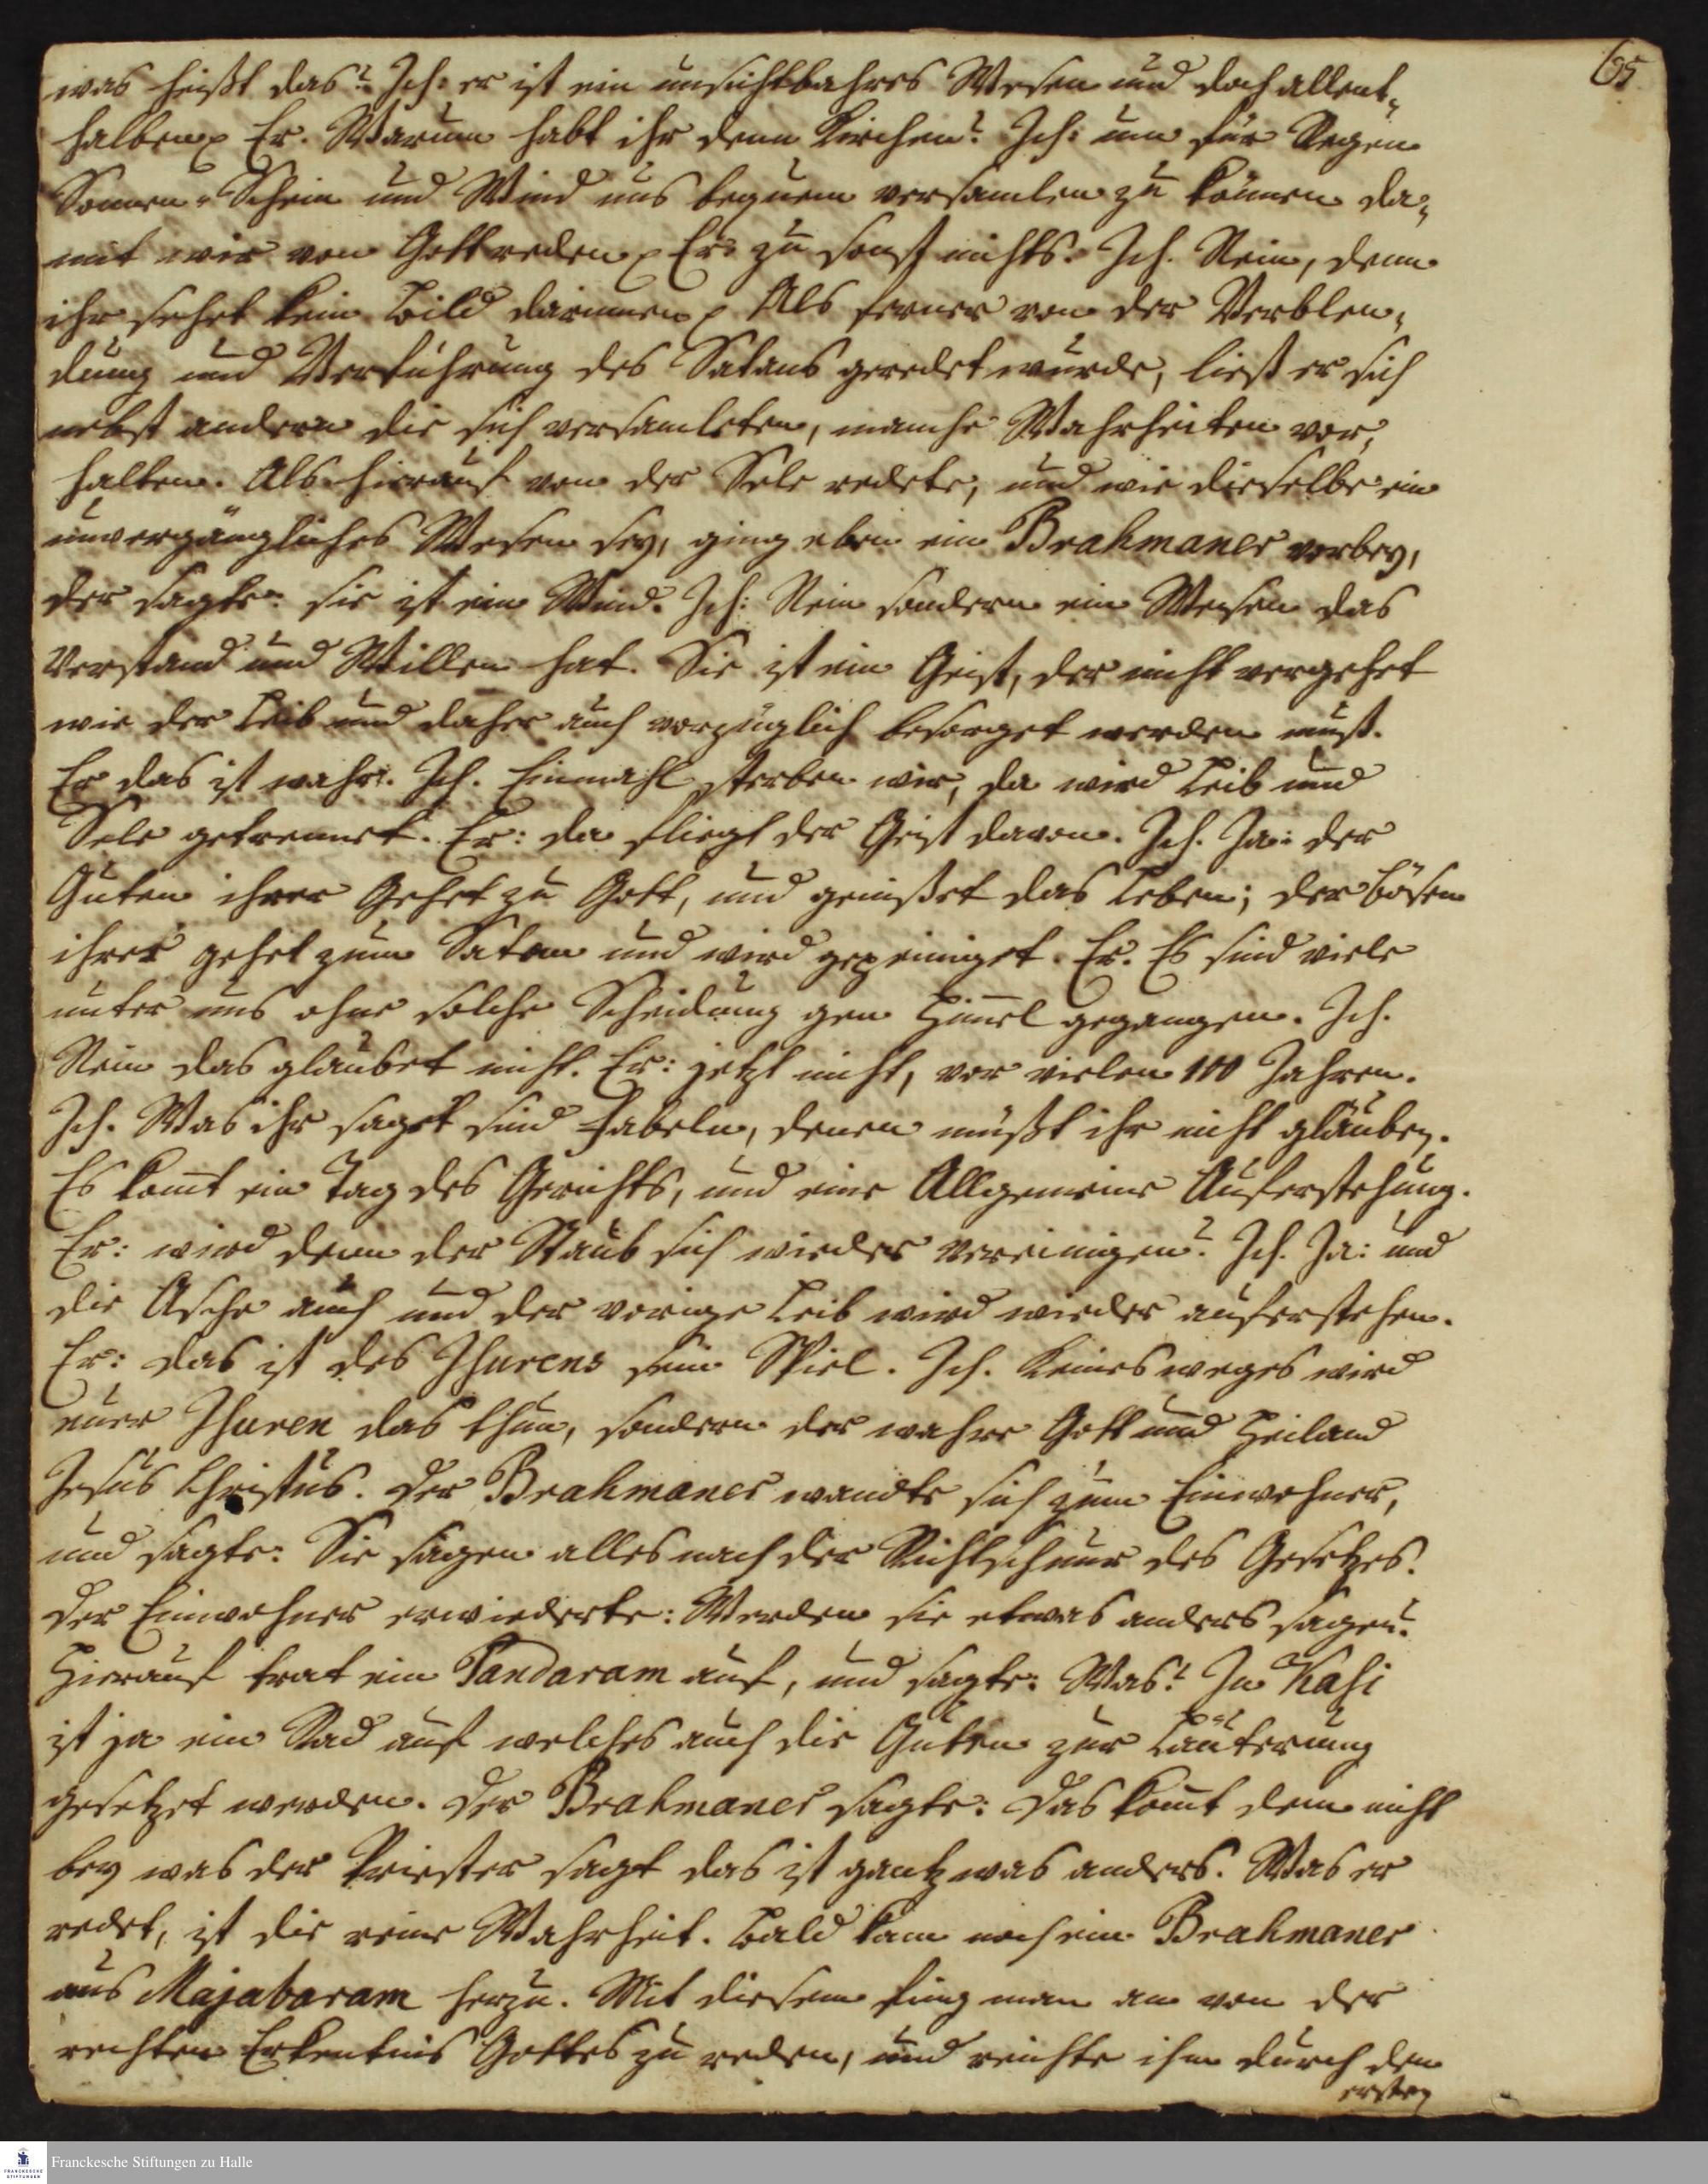 65
was heißt das? Ich: er ist ein unsichtbahres Wesen und doch allent-
halben p Er. Warum habt ihr denn Kirchen? Ich: um für Regen
Sonnen-Schein und Wind uns bequem versamlen zu können da-
mit wir von Gott reden p Er: zu sonst nichts. Ich. Nein, denn
ihr sehet kein Bild darinnen p Als ferner von der Verblen-
dung und Verführung des Satans geredet wurde, ließ er sich
nebst andern die sich versamleten, manche Wahrheiten vor-
halten. Als hierauf von der Sele redete, und wie dieselbe ein
unvergängliches Wesen sey, ging eben ein Brahmaner vorbey,
der sagte: sie ist ein Wind. Ich: Nein sondern ein Wesen das
Verstand und Willen hat. Sie ist ein Geist, der nicht vergehet
wie der Leib und daher auch vorzüglich besorget werden muß.
Er das ist wahr. Ich. Einmahl sterben wir, da wird Leib und
Sele getrennet. Er: da fliegt der Geist davon. Ich. Ja: der
Guten ihrer Gehet zu Gott, und genißet das Leben; der bösen
ihrer gehet zum Satan und wird gepeiniget. Er. Es sind viele
unter uns ohne solche Scheidung gen Him̅el gegangen. Ich.
Nein das glaubet nicht. Er: jetzt nicht, vor vielen 100 Jahren.
Ich. Was ihr saget sind Fabeln, denen müßt ihr nicht glauben.
Es kom̅t ein Tag des Gerichts, und eine Allgemeine Auferstehung.
Er: wird denn der Staub sich wieder vereinigen? Ich. Ja: und
die Asche auch und der vorige Leib wird wieder auferstehen.
Er: das ist des Ishurens sein Spiel. Ich. Keinesweges wird
euer Ishuren das thun, sondern der wahre Gott und Heiland
Jesus Christus. Der Brahmaner wandte sich zum Einwohner,
und sagte: Sie sagen alles nach der Richtschnur des Gesetzes.
Der Einwohner erwiederte: Werden sie etwas anders sagen?
Hierauf trat ein Pandaram auf, und sagte: Was? In Kasi
ist ja ein Rad auf welches auch die Guten zur Läuterung
gesetzet werden. Der Brahmaner sagte: Das kom̅t dem nicht
bey was der Priester sagt das ist gantz was anders. Was er
redet, ist die reine Wahrheit. Bald kam noch ein Brahmaner
aus Majabaram herzu. Mit diesem fing man an von der
rechten Erkentnis Gottes zu reden, und reichte ihm durch den
ersten
Franckesche Stiftungen zu Halle
FRANCKESCHE
STIFTUNGEN